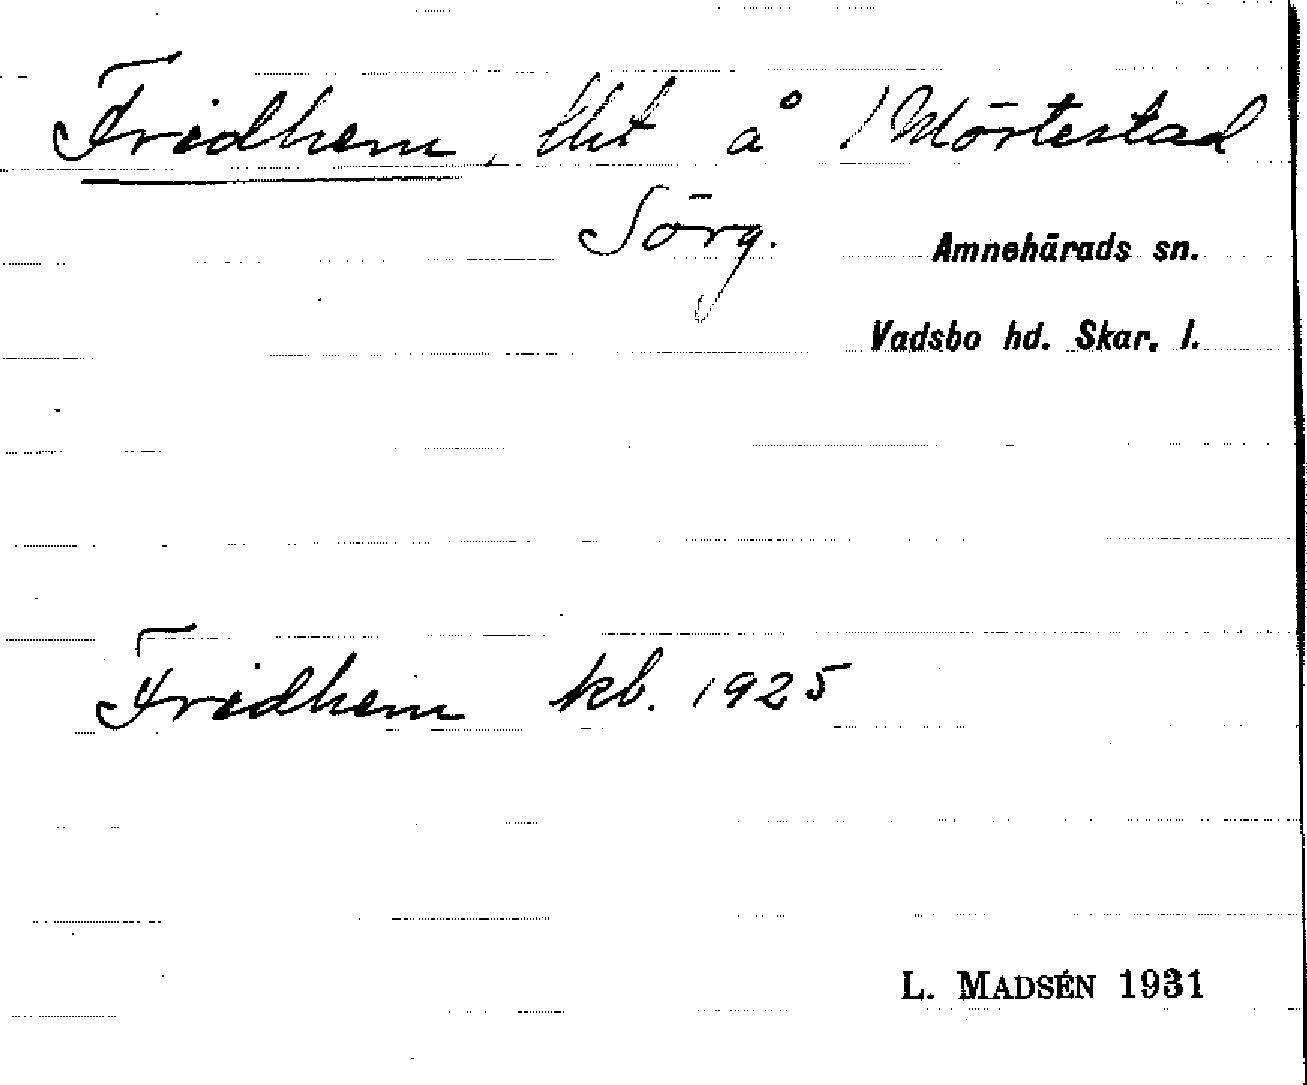 Fridhem, tht å /Mörtestad
Sörg.
Amnehärads sn.
Vadsbo hd. Skar. l.
Fridhem kb. 1925
L. MADSÉN 1931